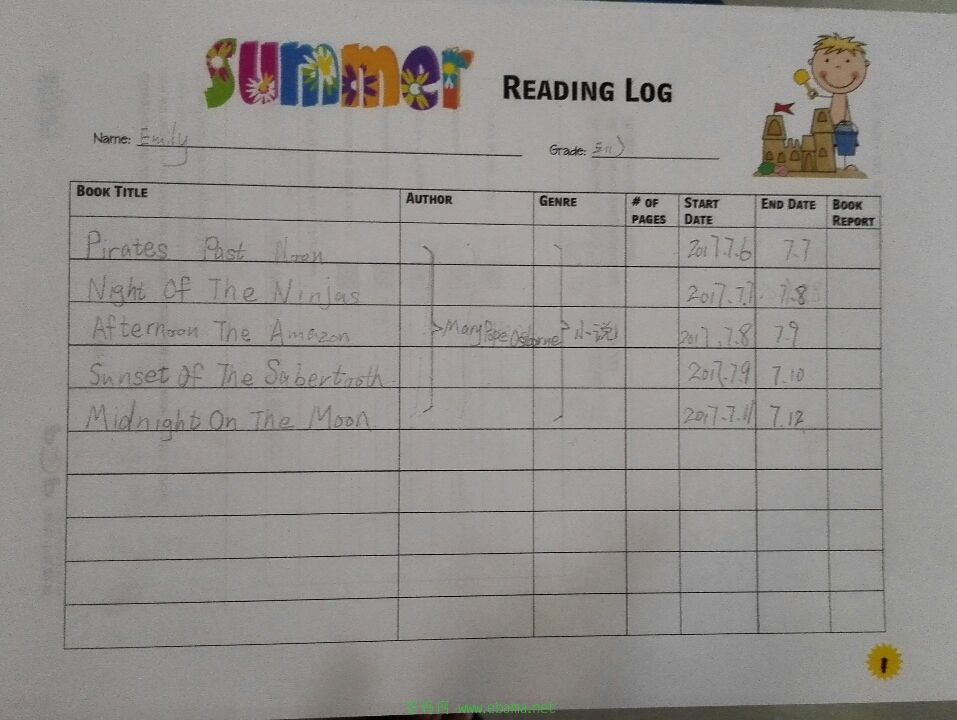 summer READING LOG
Name: Emily Grade: 五(1)
BOOK TITLE AUTHOR GENRE # OF PAGES START DATE END DATE BOOK REPORT
Pirates Past Noon 2017.7.6 7.7
Night Of The Ninjas 2017.7.7 7.8
Afternoon The Amazon Mary Pope Osborne 小说 2017.7.8 7.9
Sunset Of The Sabertooth 2017.7.9 7.10
Midnight On The Moon 2017.7.11 7.12
1
www.ebama.net